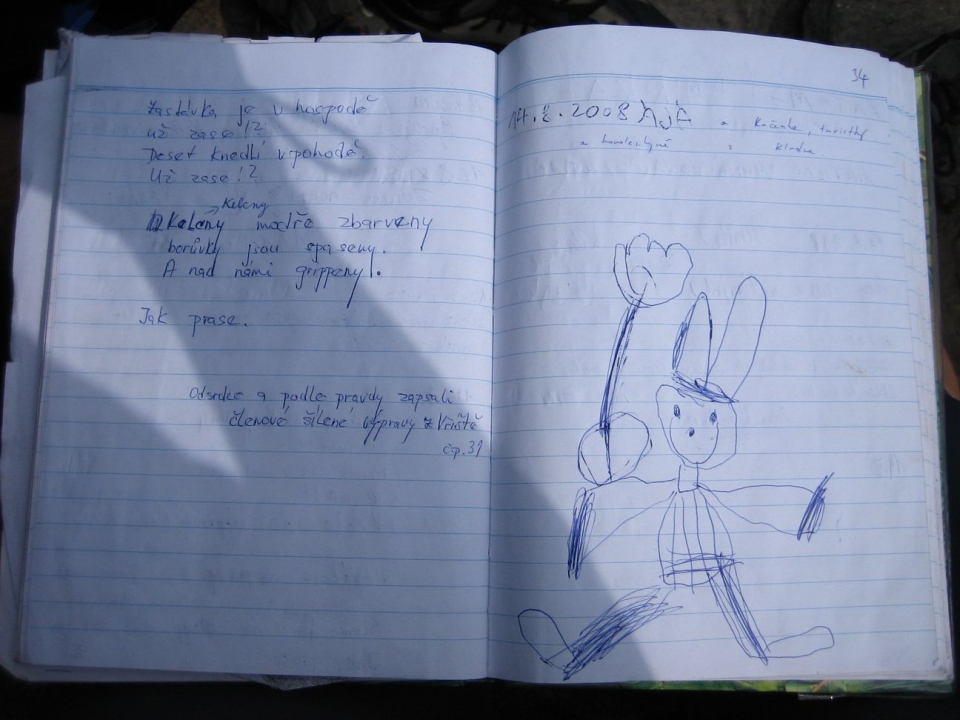 Zastávka je v hospodě
už zase!?
Deset knedlí v pohodě.
Už zase!?
Keleny
Keleny modře zbarveny
borůvky jsou spaseny.
A nad námi grippeny.
Jak prase.
Odsrdce a podle pravdy zapsali
členové šílené výpravy z Vřiště
čp.31
34
2008
turistky